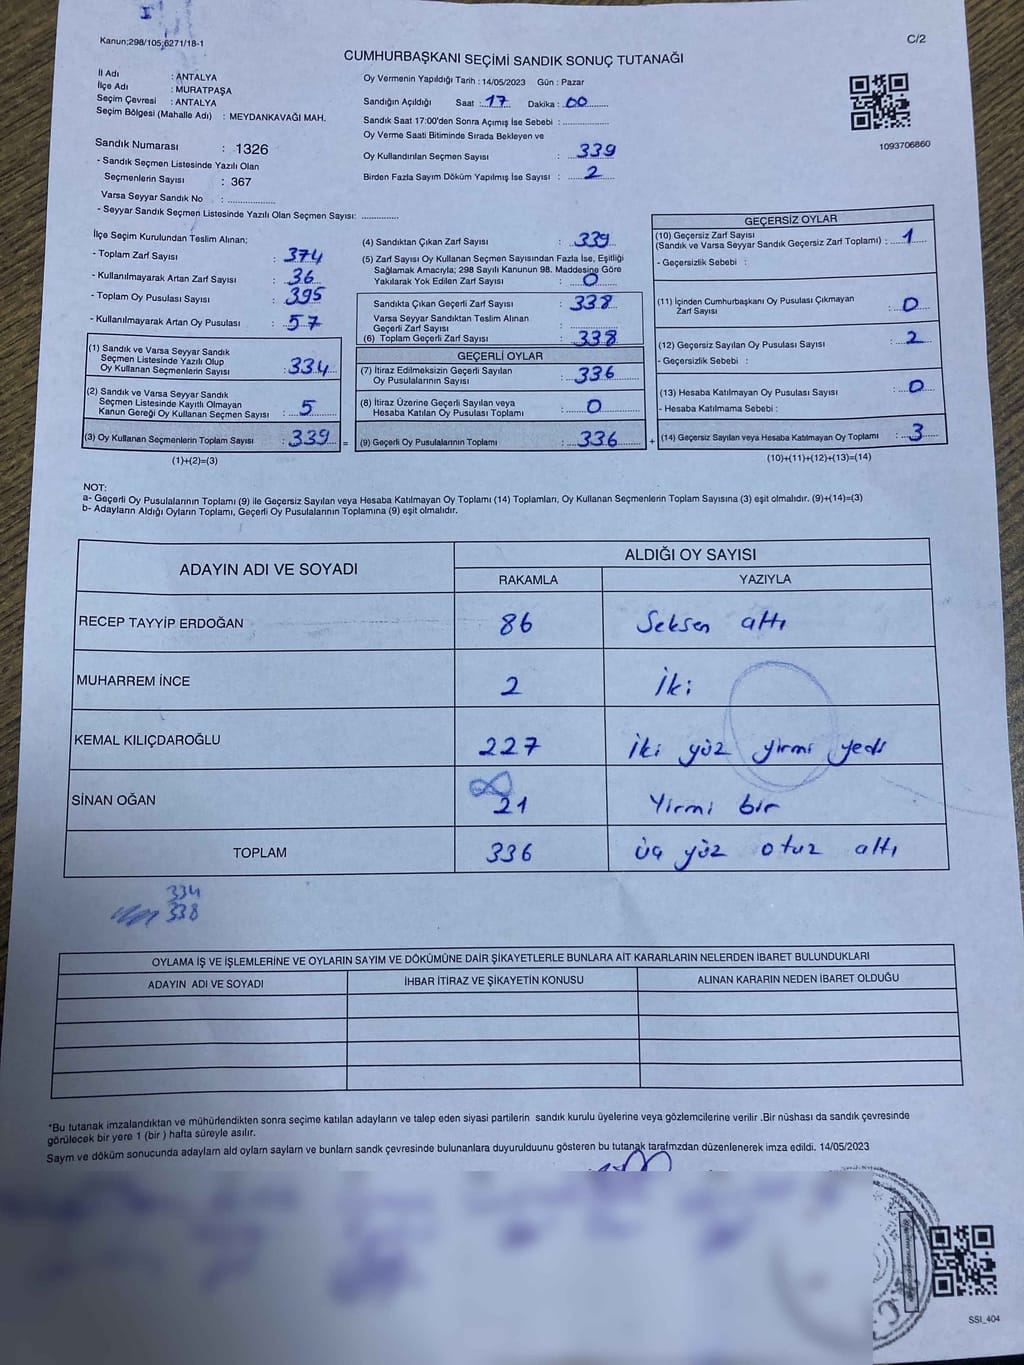 Kanun;298/105;6271/18-1
C/2
CUMHURBAŞKANI SEÇİMİ SANDIK SONUÇ TUTANAĞI
İl Adı : ANTALYA
İlçe Adı : MURATPAŞA
Seçim Çevresi : ANTALYA
Seçim Bölgesi (Mahalle Adı) : MEYDANKAVAĞI MAH.
Oy Vermenin Yapıldığı Tarih : 14/05/2023 Gün : Pazar
Sandığın Açıldığı Saat : 17 Dakika : 00
Sandık Saat 17:00'den Sonra Açımış İse Sebebi :
Oy Verme Saati Bitiminde Sırada Bekleyen ve
Oy Kullandırılan Seçmen Sayısı : 339
Birden Fazla Sayım Döküm Yapılmış İse Sayısı : 2
1093706860
Sandık Numarası : 1326
- Sandık Seçmen Listesinde Yazılı Olan
Seçmenlerin Sayısı : 367
Varsa Seyyar Sandık No :
- Seyyar Sandık Seçmen Listesinde Yazılı Olan Seçmen Sayısı:
İlçe Seçim Kurulundan Teslim Alınan;
- Toplam Zarf Sayısı : 374
- Kullanılmayarak Artan Zarf Sayısı : 36
- Toplam Oy Pusulası Sayısı : 395
- Kullanılmayarak Artan Oy Pusulası : 57
(1) Sandık ve Varsa Seyyar Sandık
Seçmen Listesinde Yazılı Olup
Oy Kullanan Seçmenlerin Sayısı : 334
(2) Sandık ve Varsa Seyyar Sandık
Seçmen Listesinde Kayıtlı Olmayan
Kanun Gereği Oy Kullanan Seçmen Sayısı : 5
(3) Oy Kullanan Seçmenlerin Toplam Sayısı : 339 =
(1)+(2)=(3)
(4) Sandıktan Çıkan Zarf Sayısı : 339
(5) Zarf Sayısı Oy Kullanan Seçmen Sayısından Fazla İse, Eşitliği
Sağlamak Amacıyla; 298 Sayılı Kanunun 98. Maddesine Göre
Yakılarak Yok Edilen Zarf Sayısı : 0
Sandıkta Çıkan Geçerli Zarf Sayısı : 338
Varsa Seyyar Sandıktan Teslim Alınan
Geçerli Zarf Sayısı :
(6) Toplam Geçerli Zarf Sayısı : 338
GEÇERLİ OYLAR
(7) İtiraz Edilmeksizin Geçerli Sayılan
Oy Pusulalarının Sayısı : 336
(8) İtiraz Üzerine Geçerli Sayılan veya
Hesaba Katılan Oy Pusulası Toplamı : 0
(9) Geçerli Oy Pusulalarının Toplamı : 336 +
GEÇERSİZ OYLAR
(10) Geçersiz Zarf Sayısı
(Sandık ve Varsa Seyyar Sandık Geçersiz Zarf Toplamı) : 1
- Geçersizlik Sebebi :
(11) İçinden Cumhurbaşkanı Oy Pusulası Çıkmayan
Zarf Sayısı : 0
(12) Geçersiz Sayılan Oy Pusulası Sayısı : 2
- Geçersizlik Sebebi :
(13) Hesaba Katılmayan Oy Pusulası Sayısı : 0
- Hesaba Katılmama Sebebi :
(14) Geçersiz Sayılan veya Hesaba Katılmayan Oy Toplamı : 3
(10)+(11)+(12)+(13)=(14)
NOT:
a- Geçerli Oy Pusulalarının Toplamı (9) ile Geçersiz Sayılan veya Hesaba Katılmayan Oy Toplamı (14) Toplamları, Oy Kullanan Seçmenlerin Toplam Sayısına (3) eşit olmalıdır. (9)+(14)=(3)
b- Adayların Aldığı Oyların Toplamı, Geçerli Oy Pusulalarının Toplamına (9) eşit olmalıdır.
ADAYIN ADI VE SOYADI ALDIĞI OY SAYISI
RAKAMLA YAZIYLA
RECEP TAYYİP ERDOĞAN 86 Seksen altı
MUHARREM İNCE 2 İki
KEMAL KILIÇDAROĞLU 227 iki yüz yirmi yedi
SİNAN OĞAN 21 Yirmi bir
TOPLAM 336 üç yüz otuz altı
334
338
OYLAMA İŞ VE İŞLEMLERİNE VE OYLARIN SAYIM VE DÖKÜMÜNE DAİR ŞİKAYETLERLE BUNLARA AİT KARARLARIN NELERDEN İBARET BULUNDUKLARI
ADAYIN ADI VE SOYADI İHBAR İTİRAZ VE ŞİKAYETİN KONUSU ALINAN KARARIN NEDEN İBARET OLDUĞU
*Bu tutanak imzalandıktan ve mühürlendikten sonra seçime katılan adayların ve talep eden siyasi partilerin sandık kurulu üyelerine veya gözlemcilerine verilir .Bir nüshası da sandık çevresinde
görülecek bir yere 1 (bir ) hafta süreyle asılır.
Saym ve döküm sonucunda adaylarn ald oylarn saylarn ve bunlarn sandk çevresinde bulunanlara duyurulduunu gösteren bu tutanak tarafmzdan düzenlenerek imza edildi. 14/05/2023
SSI_404